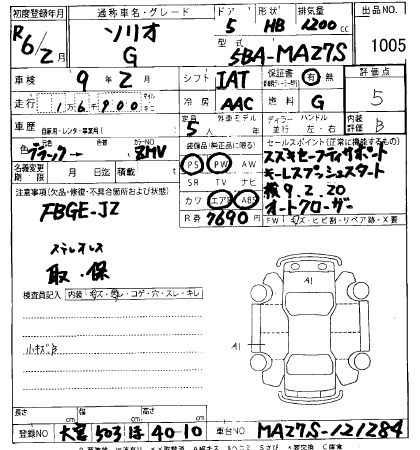 初度登録年月 通称車名・グレード ドア 形状 排気量 出品NO
R6/2月 ソリオ G 5 HB 1200cc 1005
型式 5BA-MA27S
車検 9年2月 シフト IAT 保証書 有 無 評価点 5
走行 16900 冷房 AAC 燃料 G
車歴 自家用・レンタ・事業用 定員 5人 ディーラー 並行 ハンドル 左・右 内装評価 B
色 ブラック→ 色替 カラーNO ZMV
装備品(純正品に限る)
PS PW AW
SR TV ナビ
カワ エアB ABS
R券 7690
セールスポイント(正常に機能するもの)
スズキセーフティサポート
キーレスプッシュスタート
検 9.2.20
オートクローザー
FW キズ・ヒビ割・リペア跡・X要
名義変更期限 月 日 積載 t
注意事項(欠品・修復・不具合箇所および状態)
FBGE-JZ
ステレオレス
取・保
検査員記入 内装 キズ・汚レ・コゲ・穴・スレ・キレ
小キズB
A1
A1
長さ cm 幅 cm 高さ cm
登録NO 大宮 503 ほ 40-10 車台NO MA27S-121284